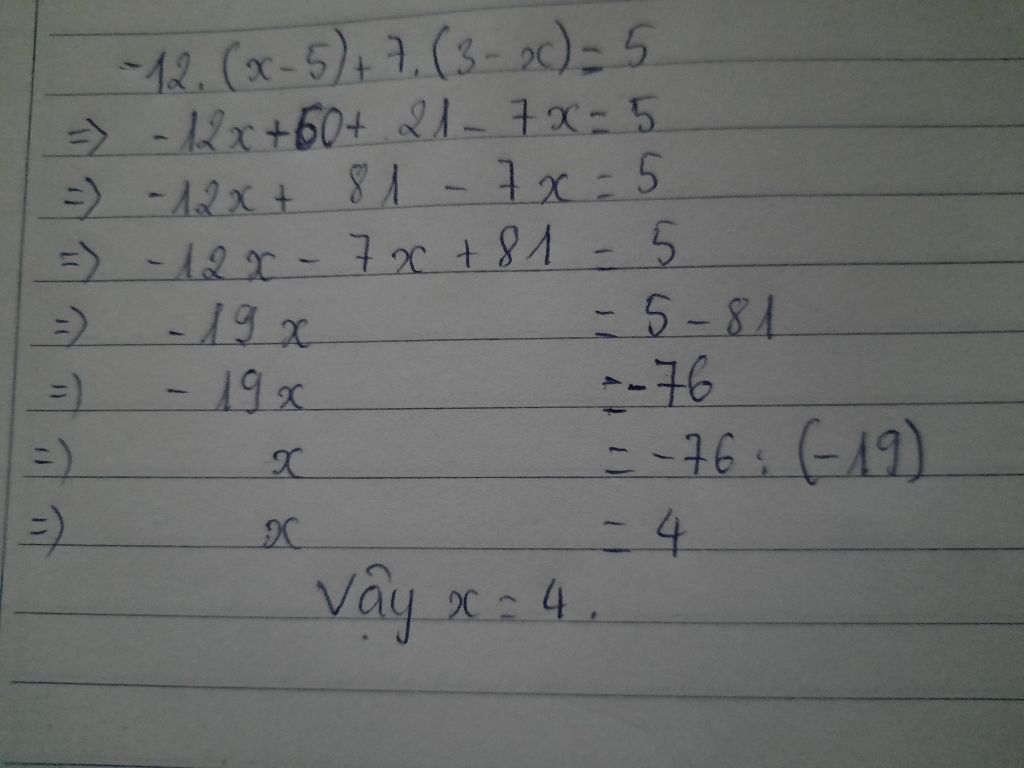 -12.(x-5)+7.(3-x)=5
=> -12x+60+21-7x=5
=> -12x+81-7x=5
=> -12x-7x+81=5
=> -19x=5-81
=> -19x=-76
=> x=-76:(-19)
=> x=4
Vậy x=4.